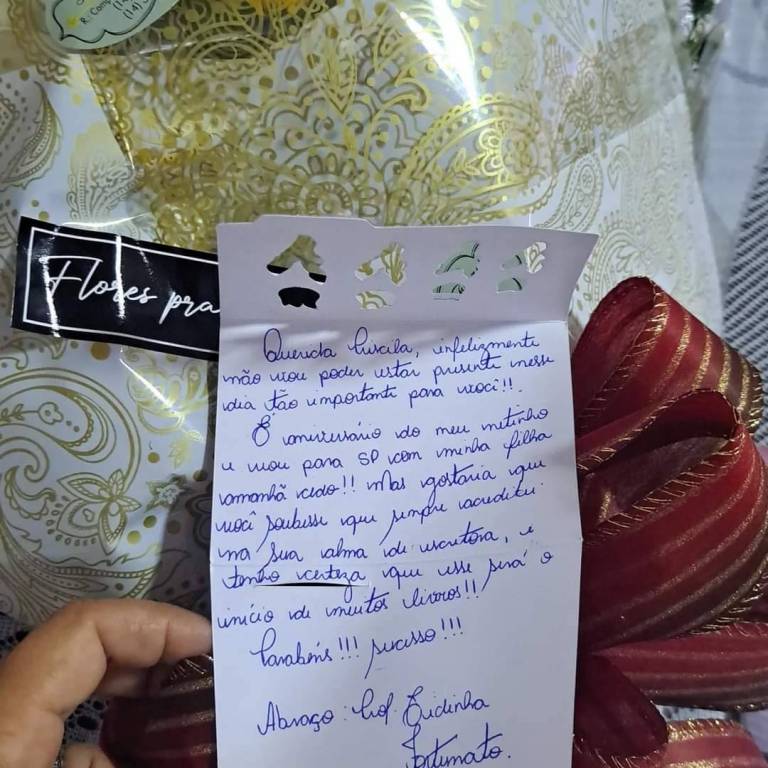 R. Comp
(14)
Flores pra
Querida Priscila, infelizmente
não vou poder estar presente nesse
dia tão importante para você!!.
É aniversário do meu netinho
e vou para SP com minha filha
amanhã cedo!! Mas gostaria que
você soubesse que sempre acreditei
na sua alma de escritora, e
tenho certeza que esse será o
início de muitos livros!!
Parabéns!!! sucesso!!!
Abraço: Prof. Eudinha
Fortunato.